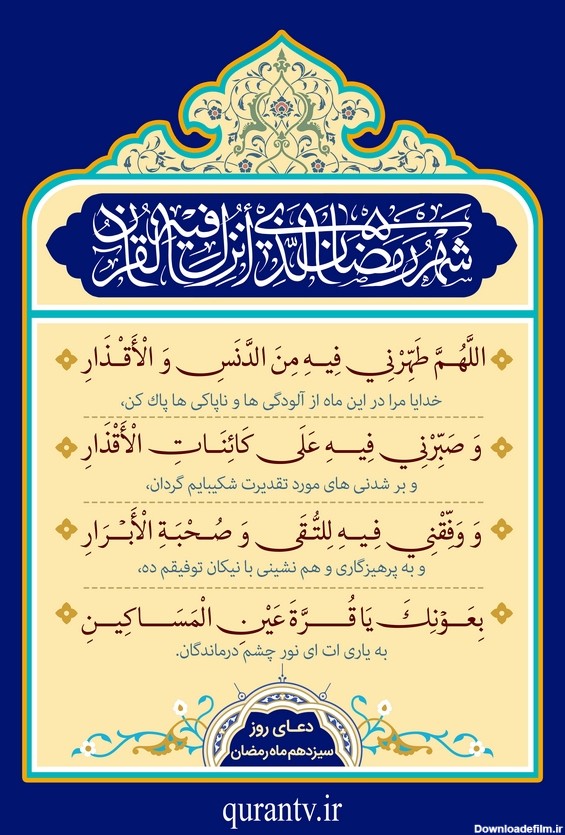 شَهْرُ رَمَضَانَ الَّذِي أُنْزِلَ فِيهِ الْقُرْآنُ
اللَّهُمَّ طَهِّرْنِي فِيهِ مِنَ الدَّنَسِ وَ الْأَقْذَارِ
خدایا مرا در این ماه از آلودگی ها و ناپاکی ها پاک کن،
وَ صَبِّرْنِي فِيهِ عَلَى كَائِنَاتِ الْأَقْذَارِ
و بر شدنی های مورد تقدیرت شکیبایم گردان،
وَ وَفِّقْنِي فِيهِ لِلتُّقَى وَ صُحْبَةِ الْأَبْرَارِ
و به پرهیزگاری و هم نشینی با نیکان توفیقم ده،
بِعَوْنِكَ يَا قُرَّةَ عَيْنِ الْمَسَاكِينِ
به یاری ات ای نور چشم درماندگان.
دعای روز
سیزدهم ماه رمضان
qurantv.ir
Downloadefilm.ir